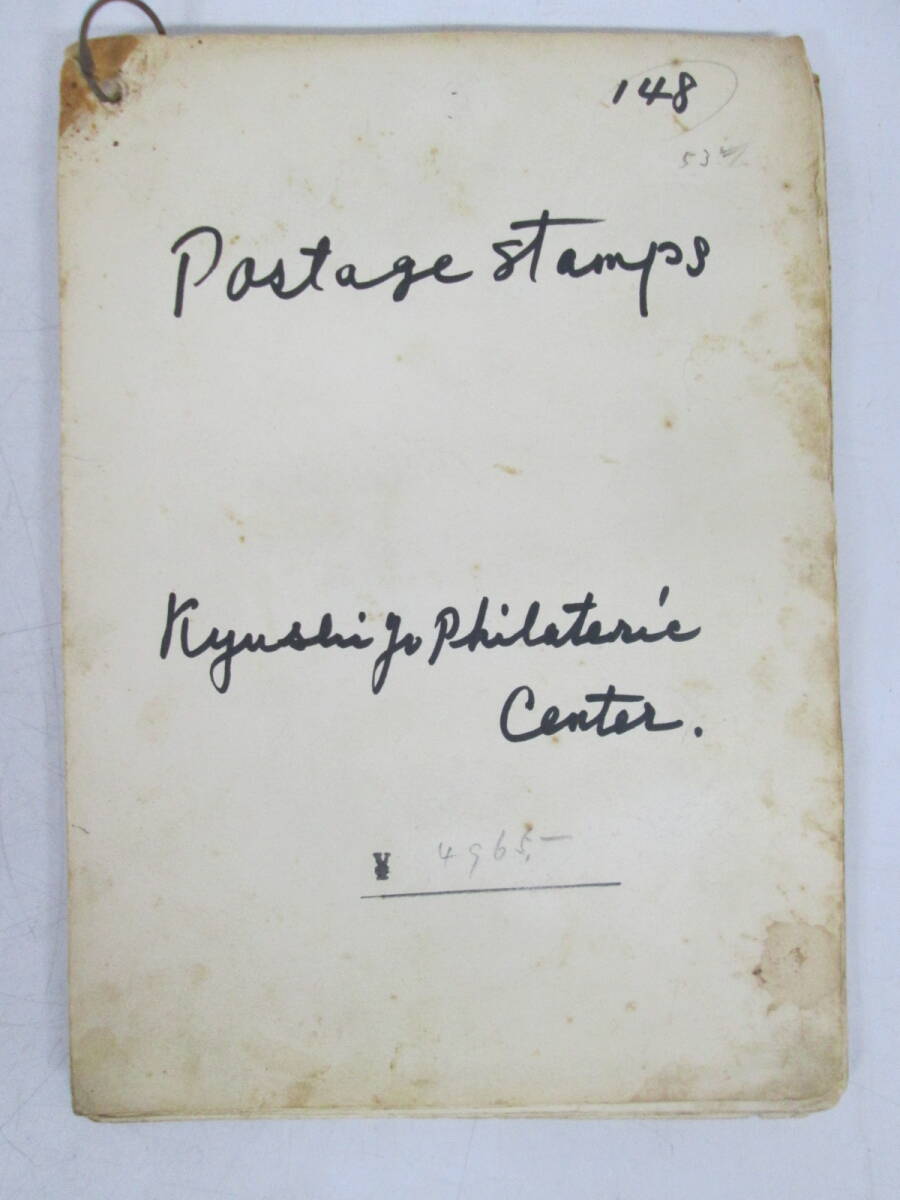 148
Postage stamps
Kyushi Yo Philateric
Center.
¥ 4965,—